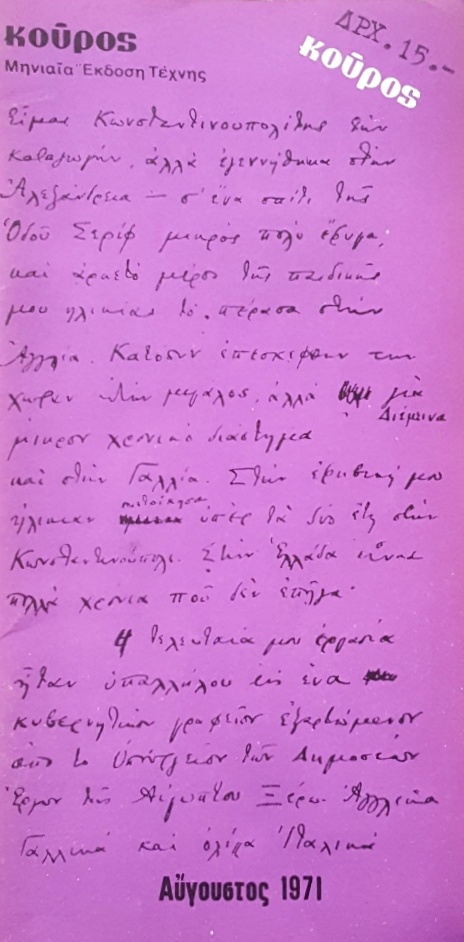 κοῦρος
Μηνιαῖα Ἔκδοση Τέχνης
ΔΡΧ. 15.-
κοῦρος
Εἶμαι Κωνσταντινουπολίτης τὴν
καταγωγήν, ἀλλὰ ἐγεννήθηκα στὴν
Ἀλεξάνδρεια — σ' ἕνα σπίτι τῆς
Ὁδοῦ Σερίφ· μικρὸς πολὺ ἔφυγα,
καὶ ἀρκετὸ μέρος τῆς παιδικῆς
μου ἡλικίας τὸ πέρασα στὴν
Ἀγγλία. Κατόπιν ἐπεσκέφθην τὴν
χώραν αὐτὴν μεγάλος, ἀλλὰ γιὰ
μικρὸν χρονικὸ διάστημα
Διέμεινα
καὶ στὴν Γαλλία. Στὴν ἐφηβικήν μου
ἡλικίαν κατοίκησα ὑπὲρ τὰ δύο ἔτη στὴν
Κωνσταντινούπολι. Στὴν Ἑλλάδα εἶναι
πολλὰ χρόνια ποῦ δὲν ἐπῆγα.
Ἡ τελευταία μου ἐργασία
ἦταν ὑπαλλήλου εἰς ἕνα
κυβερνητικὸν γραφεῖον ἐξαρτώμενον
ἀπὸ τὸ Ὑπουργεῖον τῶν Δημοσίων
Ἔργων τῆς Αἰγύπτου. Ξέρω Ἀγγλικά
Γαλλικά καὶ ὀλίγα Ἰταλικά
Αὔγουστος 1971